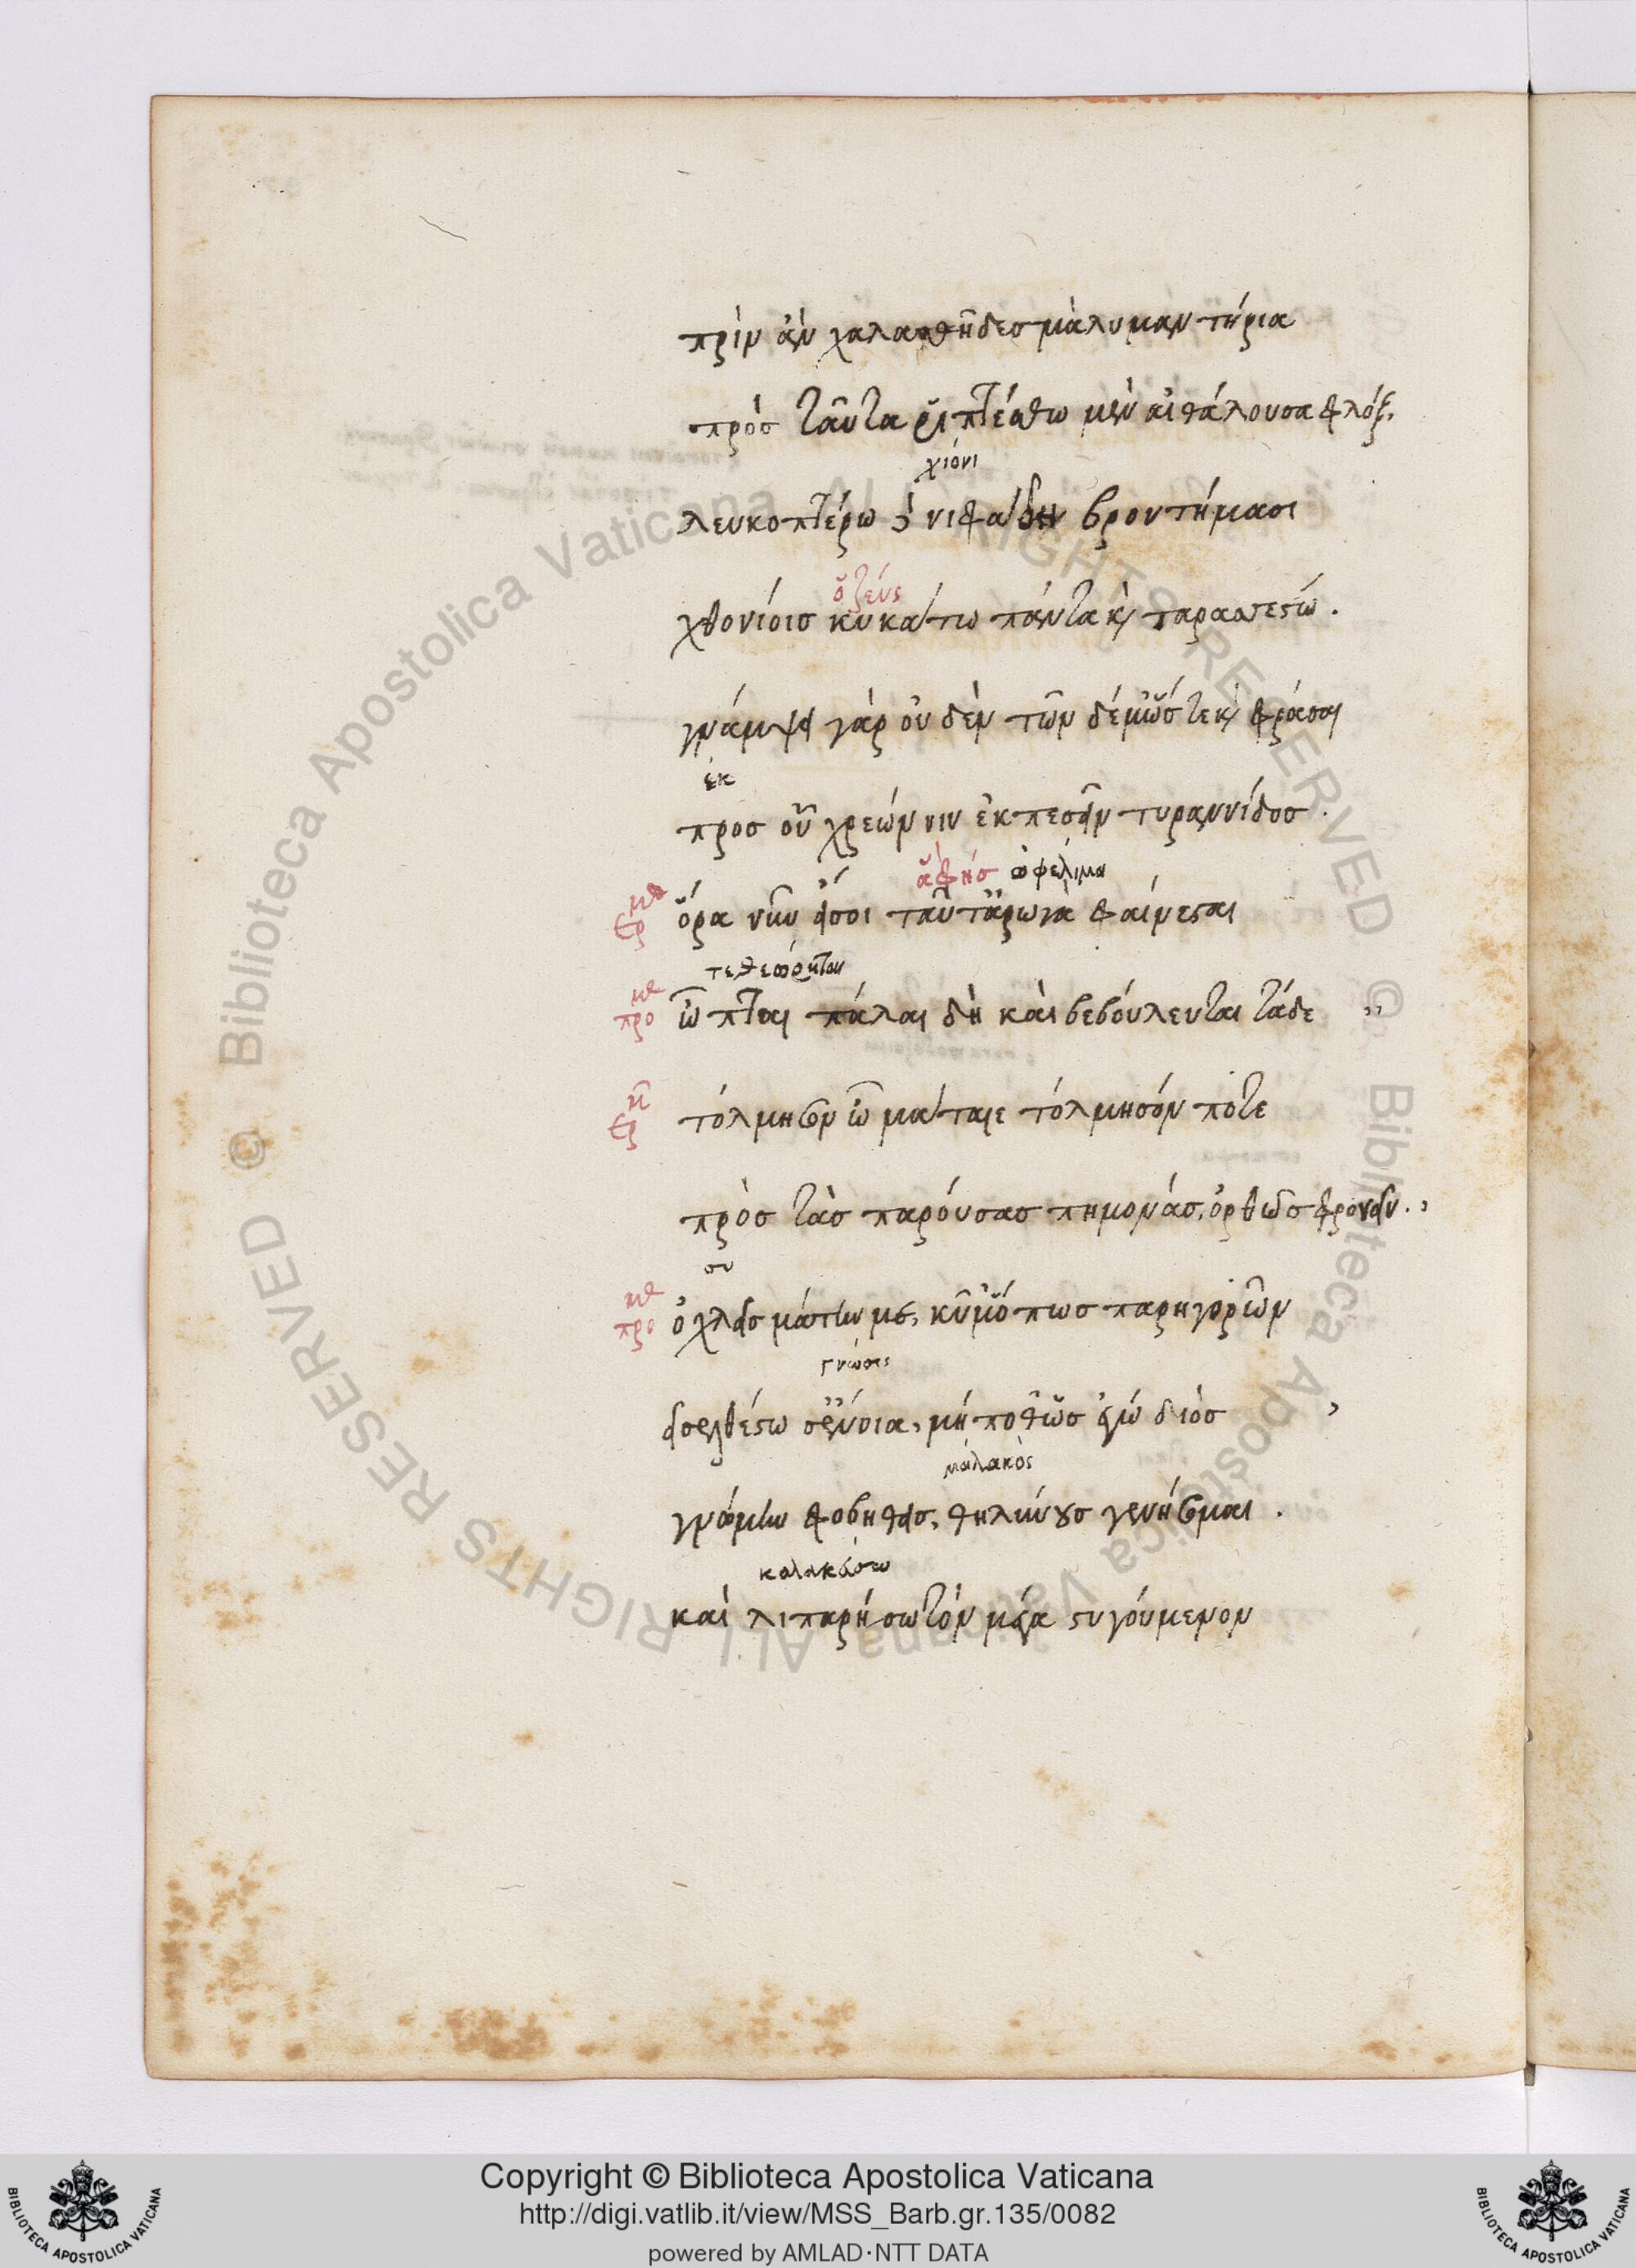 πρὶν ἂν χαλασθῆ δεσμὰ λυμαντήρια
πρὸς ταῦτα ῥιπτέσθω μὲν αἰθάλουσα φλόξ.
χιόνι
λευκοπτέρω δὲ νιφάδι βροντήμασι
ὁ ζεύς
χθονίοις κυκάτω πάντα καὶ ταρασσέτω.
γνάμψει γὰρ οὐδὲν τῶνδέ μ' ὥστε καὶ φράσαι
ἐκ
προς οὗ χρεών νιν ἐκπεσεῖν τυραννίδος.
ἃ φὴς ὠφέλιμα
ερμ ὅρα νῦν εἴ σοι ταῦτ' ἀρωγὰ φαίνεται
τεθεώρηται
προμ ὦπται πάλαι δὴ καὶ βεβούλευται τάδε
ερμ τόλμησον ὦ μάταιε τόλμησόν ποτε
πρὸς τὰς παρούσας πημονάς, ὀρθῶς φρονεῖν.
συ
προμ ὀχλεῖς μάτην με, κῦμ' ὅπως παρηγορῶν
γνώσις
εἰσελθέτω σε ἔννοια, μή ποθ' ὡς ἐγὼ διὸς
μαλακὸς
γνώμην φοβηθεὶς, θηλύνους γενήσομαι.
κολακεύσω
καὶ λιπαρήσω τὸν μέγα στυγούμενον
Copyright © Biblioteca Apostolica Vaticana
http://digi.vatlib.it/view/MSS_Barb.gr.135/0082
powered by AMLAD·NTT DATA